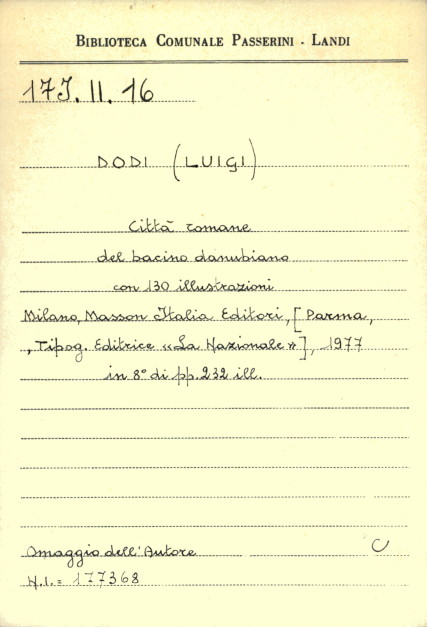 BIBLIOTECA COMUNALE PASSERINI - LANDI
17J.II.16
DODI (LUIGI)
Città romane
del bacino danubiano
con 130 illustrazioni
Milano, Masson Italia Editori, [Parma,
, Tipog. Editrice «La Nazionale»], 1977
in 8° di pp. 232 ill.
Omaggio dell'Autore C
N.I. = 177368